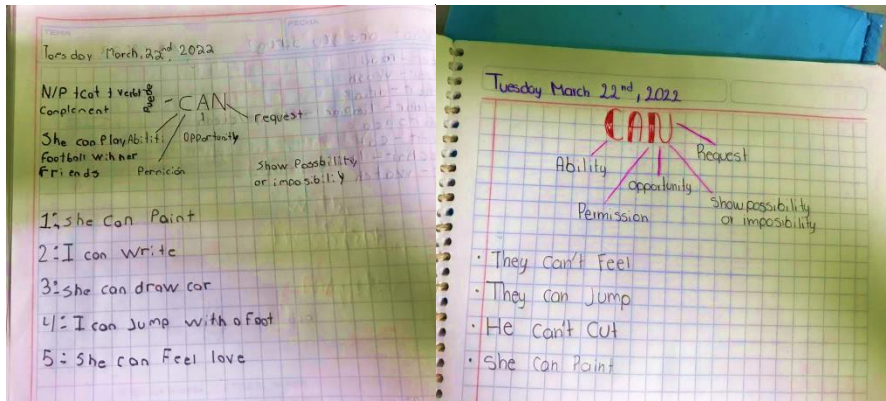 TEMA
FECHA
Toesday March, 22nd, 2022
N/P +Cat + verbt
Complement
Puede
- CAN
request
She can Play Abiliti
Football with her
Friends
Opportunity
Permición
Show Possbility
or imposibility
1: She Can Paint
2: I can write
3: she can draw car
4: I can Jump with a Foot
5: She can Feel love
Tuesday March 22nd, 2022
CAN
Ability
Request
Opportunity
Permission
Show possibility
or imposibility
· They Can't Feel
· They can Jump
· He can't Cut
· She Can Paint